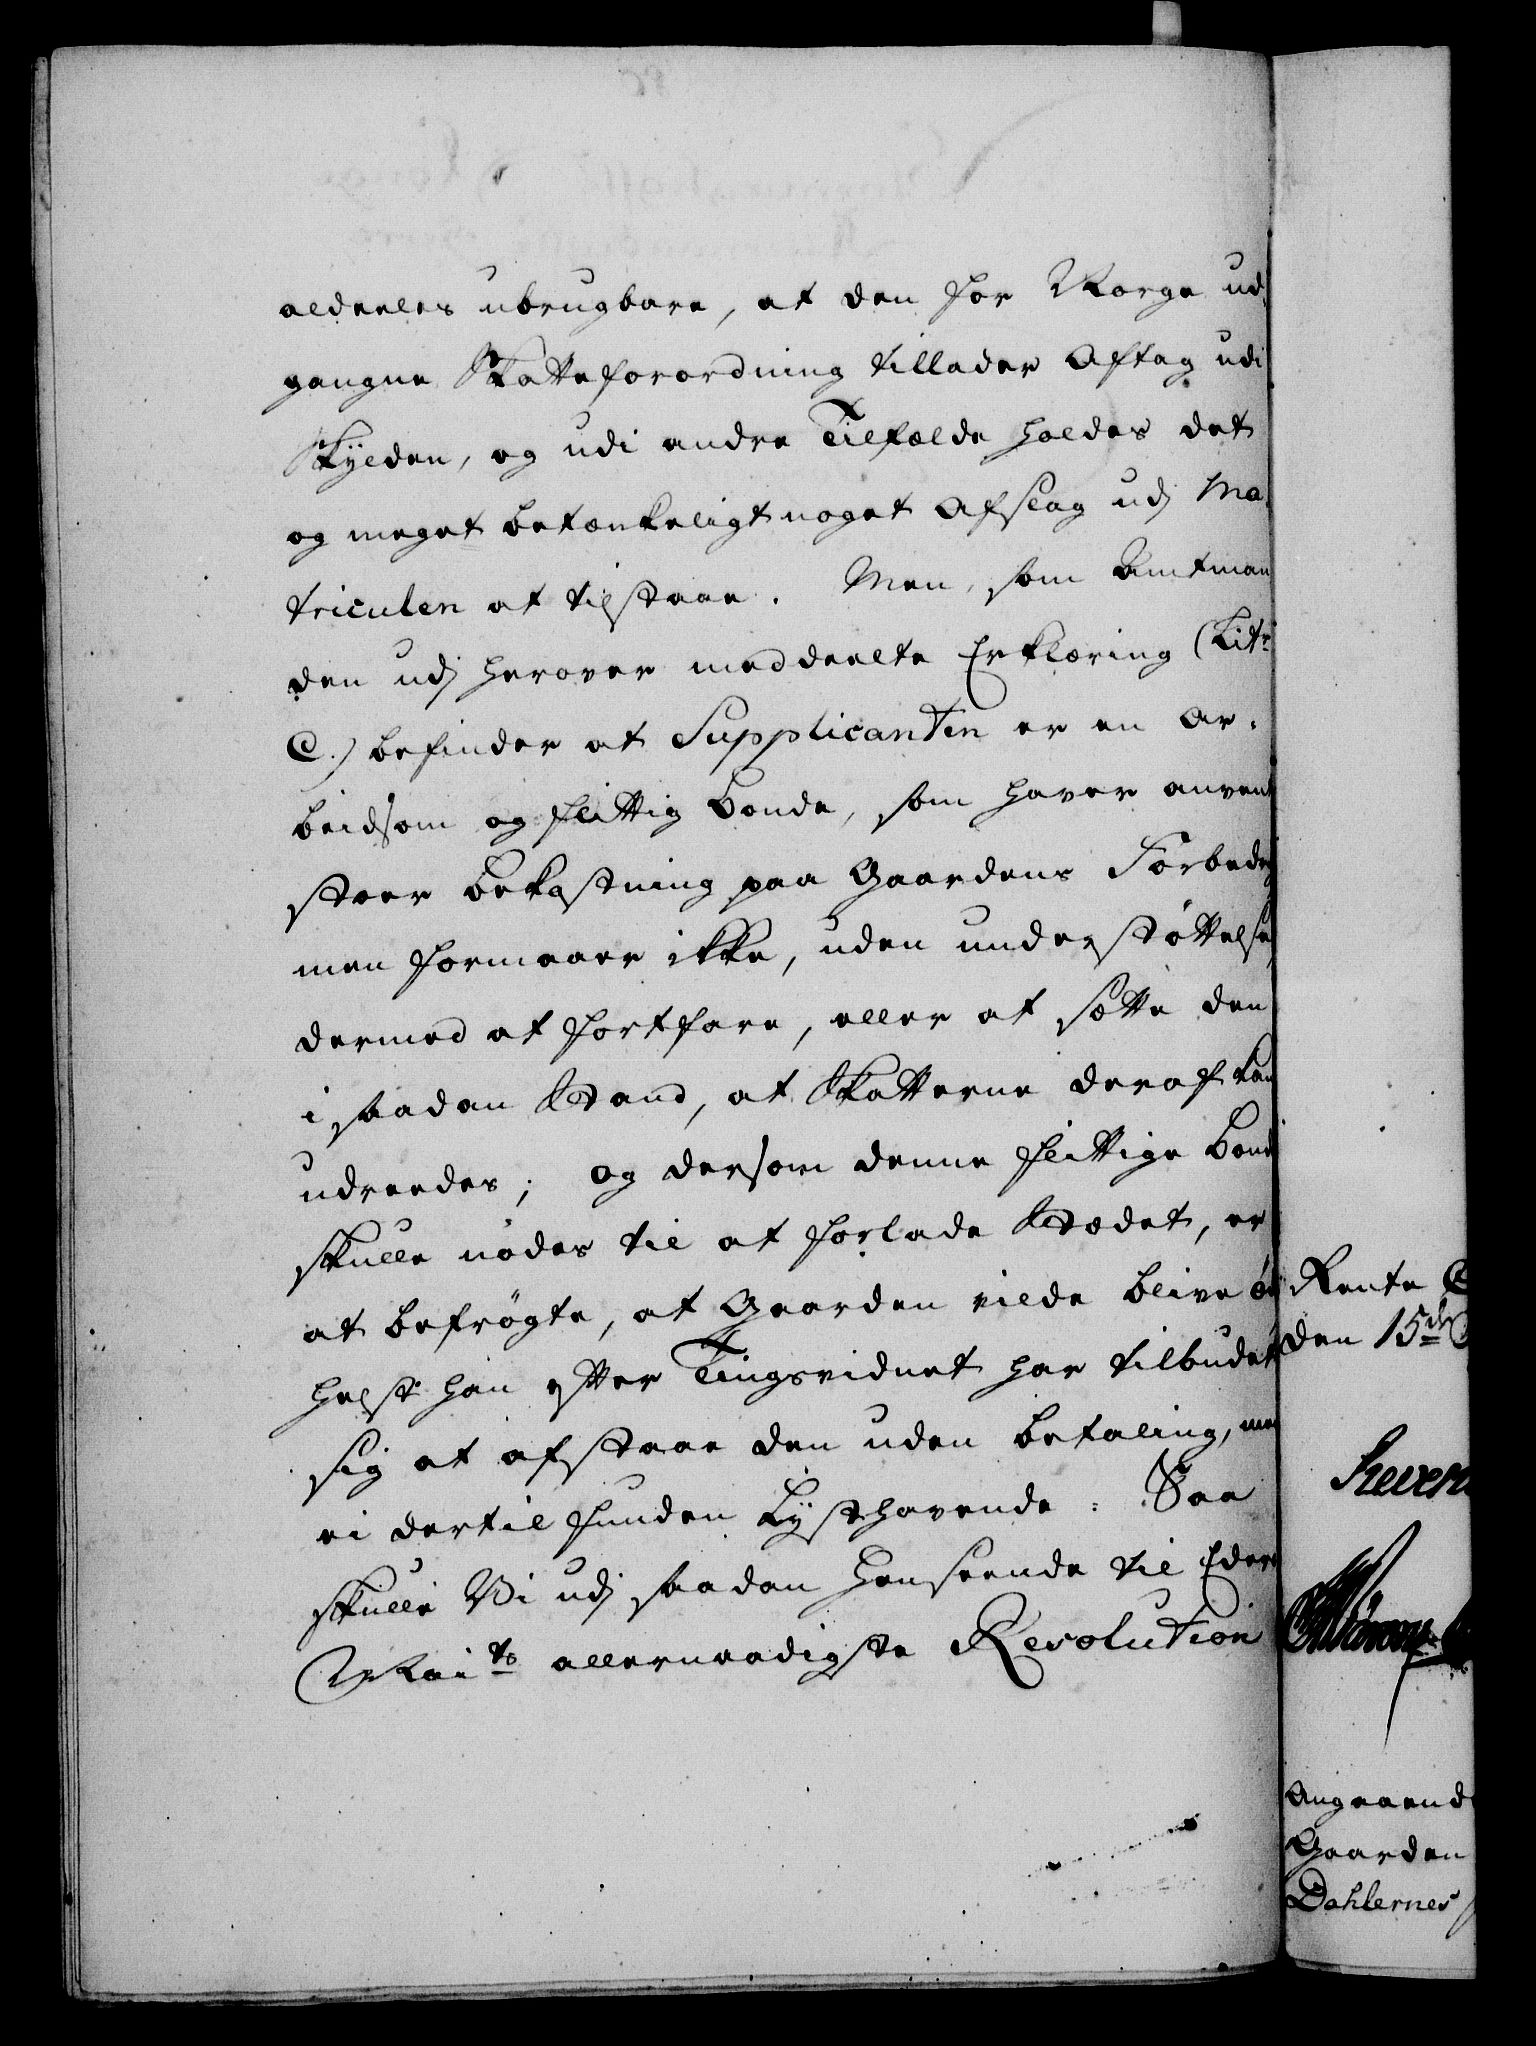 aldeeles ubrugbare, at den for Norge ud-
gangne Skatteforordning tillader Aftag udi
Skylden, og udi andre Tilfælde holdes det
og meget betænkeligt noget Afslag udj Ma-
triculen at tilstaae. Men, som Amtman
den udj herover meddeelte Erklæring (Litr:
C.) befinder at Supplicanten er en ar-
beidsom og flittig Bonde, som haver anvent
stoer Bekostning paa Gaardens Forbedr
men formaaer ikke, uden understøttelse,
dermed at fortfare, eller at sætte den
i saadan Stand, at Skatterne deraf kan
udreedes; og dersom denne flittige Bond
skulle nødes til at forlade Stædet, er
at befrøgte, at Gaarden vilde blive ød
helst han efter Tingsvidnet har tilbudet
sig at afstaae den uden betaling, men
ei dertil funden Lysthavende: Saa
skulle Vi udj saadan Henseende til Eders
Maits allernaadigste Resolution
Rente
den 15de
Angaaend
Gaarden
Dahlernes